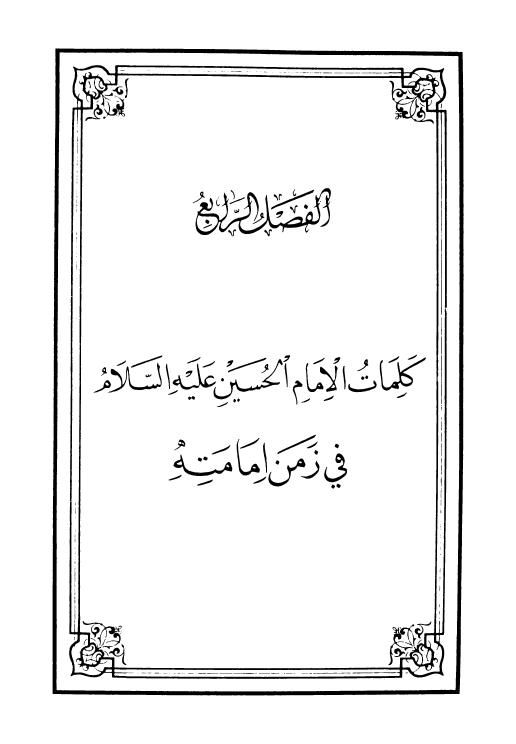 الْفَصْلُ الرَّابِعُ
كَلِمَاتُ الْاِمَامِ الْحُسَيْنِ عَلَيْهِ السَّلَامُ
في زَمَنَ اِمَامَتِهِ